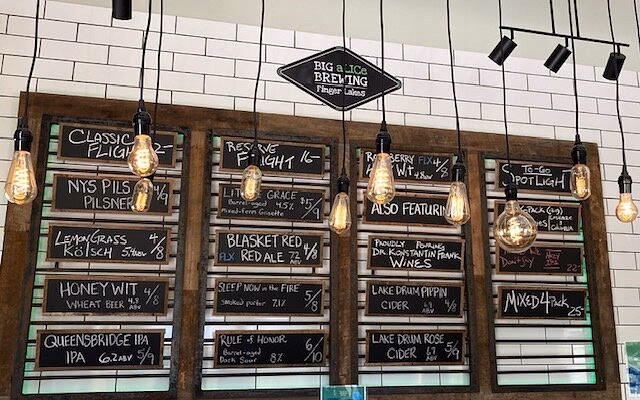 BIG aLICe
BREWING
Finger Lakes
CLASSIC
FLIGHT 12-
NYS PILS 4/
PILSNER
LEMONGRASS 4/8
KÖLSCH 5.4% ABV
HONEY WIT 4/8
WHEAT BEER 4.8 ABV
QUEENSBRIDGE IPA
IPA 6.2 ABV 5/9
RESERVE
FLIGHT 16-
GRACE $5/9
Barrel-aged 4.5%
Mixed-Ferm Grisette
BLASKET RED 4/8
FLX RED ALE 7.2 ABV
SLEEP NOW in the FIRE 5/8
Smoked porter 7.1%
RULE of HONOR 6/10
Barrel-aged
Dark Sour 8%
FLX 4/8
WIT 4.8 ABV
ALSO FEATURIN
PROUDLY POURING
DR. KONSTANTIN FRANK
WINES
LAKE DRUM PIPPIN
CIDER 4/8
LAKE DRUM ROSÉ 5/9
CIDER 6.9 ABV
TO-GO
SPOTLIGHT
22-
MIXED 4 PACK
25-